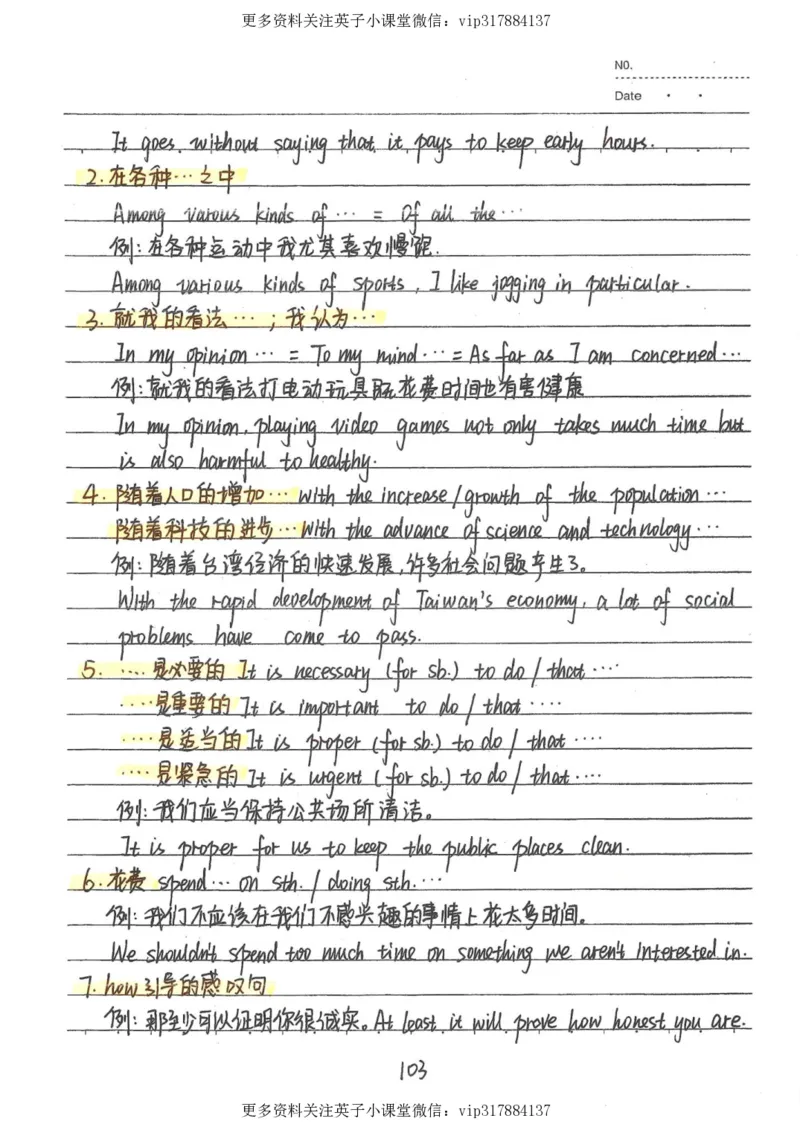 更多资料关注英子小课堂微信：vip317884137
NO.
Date · ·
It goes without saying that it pays to keep early hours.
2.在各种…之中
Among varous kinds of … = Of all the…
例:在各种运动中我尤其喜欢慢跑.
Among various kinds of sports, I like jogging in particular.
3.就我的看法…;我认为…
In my opinion… = To my mind… = As far as I am concerned…
例:就我的看法打电动玩具既花费时间也有害健康
In my opinion, playing video games not only takes much time but
is also harmful to healthy.
4.随着人口的增加… with the increase/growth of the population…
随着科技的进步…With the advance of science and technology…
例:随着台湾经济的快速发展,许多社会问题产生了。
With the rapid development of Taiwan's economy, a lot of social
problems have come to pass.
5.….是必要的 It is necessary (for sb.) to do / that ….
….是重要的 It is important to do / that ….
….是适当的 It is proper (for sb.) to do / that ….
….是紧急的 It is urgent (for sb.) to do / that ….
例:我们应当保持公共场所清洁。
It is proper for us to keep the public places clean.
6.花费 spend… on sth. / doing sth.…
例:我们不应该在我们不感兴趣的事情上花太多时间。
We shouldn't spend too much time on something we aren't interested in.
7.how引导的感叹句
例:那至少可以证明你很诚实。At least it will prove how honest you are.
103
更多资料关注英子小课堂微信：vip317884137